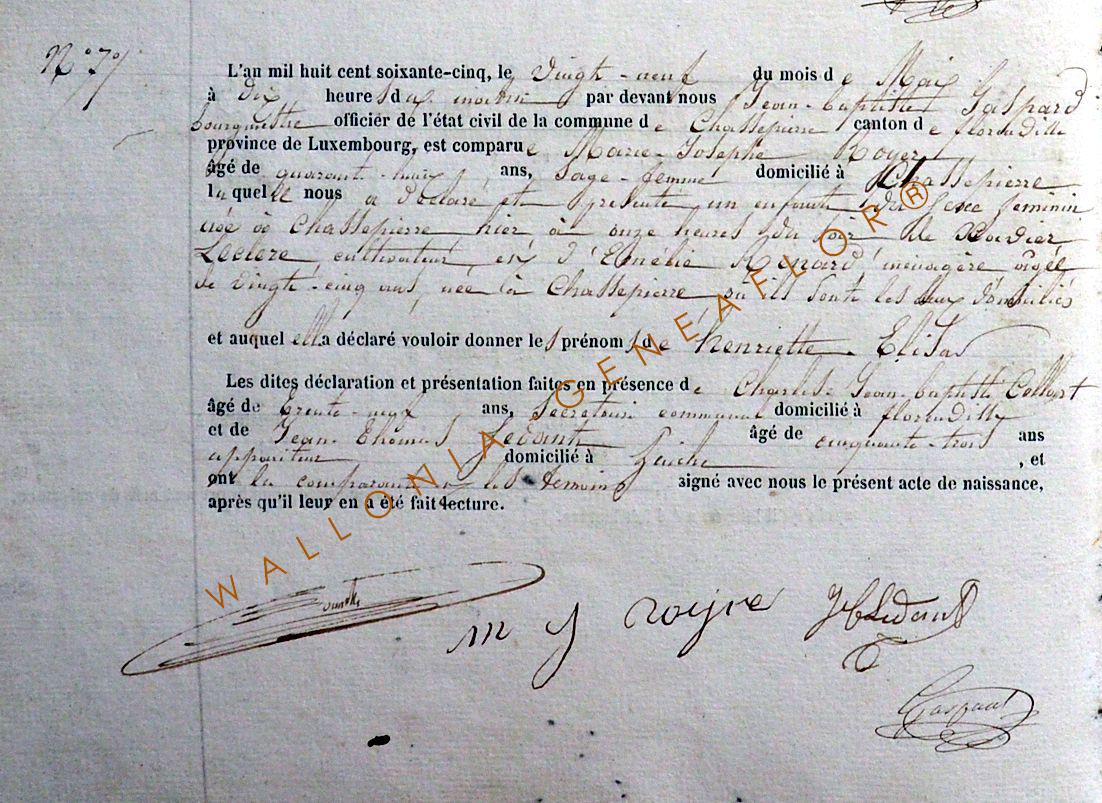 N° 7
L'an mil huit cent soixante-cinq, le vingt-neuf du mois de Mai
à dix heures du matin par devant nous Jean-baptiste Gaspard
bourgmestre officier de l'état civil de la commune de Chassepierre canton de florenville
province de Luxembourg, est comparue Marie-Josephe Royer
âgé de quarante- ans, Sage-femme domicilié à Chassepierre
laquelle nous a déclaré et présenté un enfant du sexe féminin
née à Chassepierre hier à onze heures du soir de
Leclere cultivateur et d'Emelie Renard, ménagère âgée
de vingt-cinq ans, née à Chassepierre où ils sont les deux domiciliés
et auquel elle a déclaré vouloir donner les prénoms de henriette-Elisa
Les dites déclaration et présentation faites en présence de Charles-Jean-baptiste Collart
âgé de trente-neuf ans, Secrétaire communal domicilié à florenville
et de Jean-Thomas Ledant âgé de cinquante-trois ans
appariteur domicilié à , et
ont la comparante et les témoins signé avec nous le présent acte de naissance,
après qu'il leur en a été fait lecture.
m j royre
Gaspard
WALLONIA GENEAFLOR®